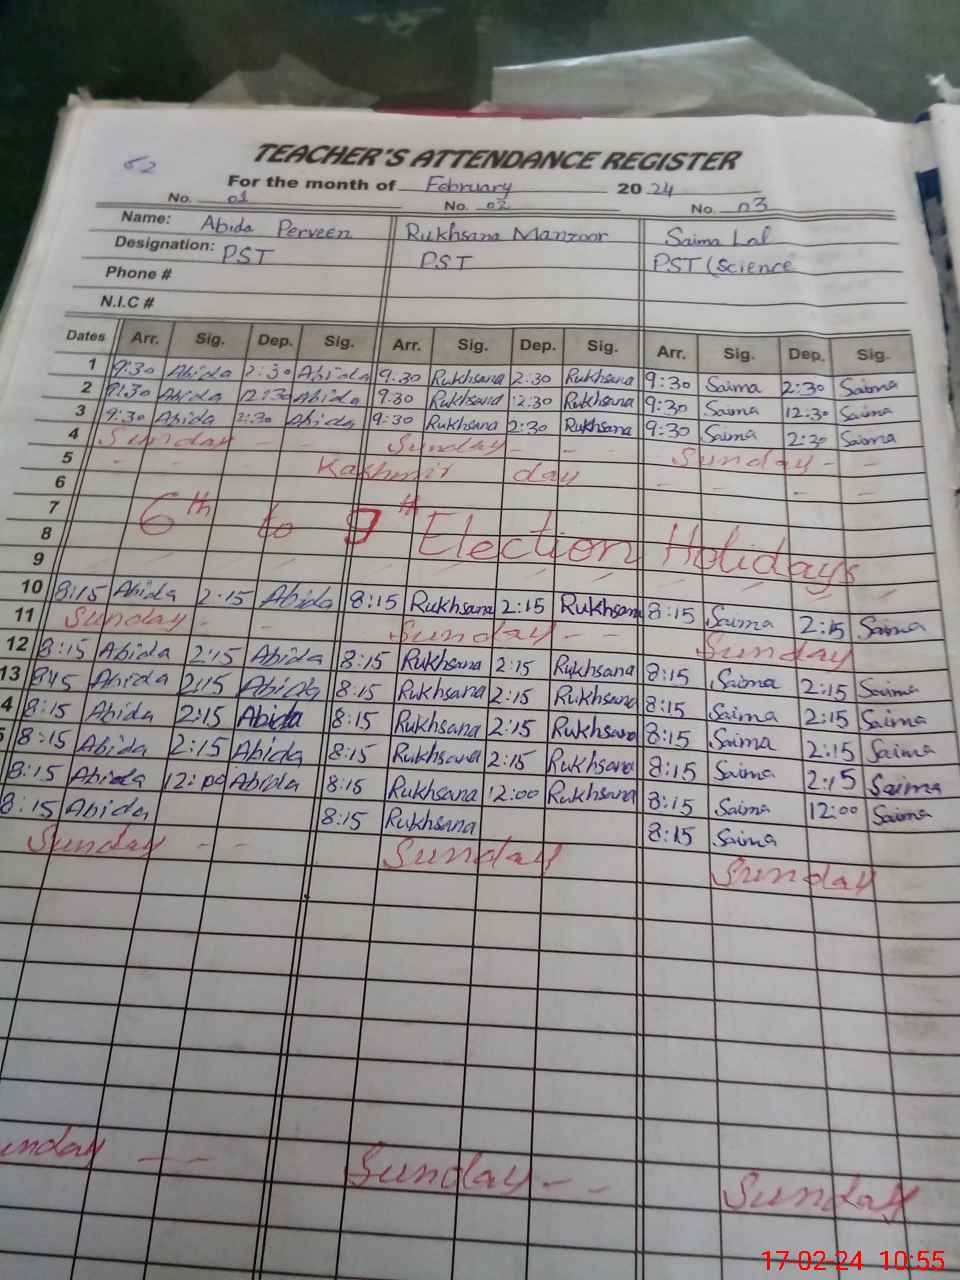 62
TEACHER'S ATTENDANCE REGISTER
For the month of February 2024
No. 01 No. 02 No. 03
Name: Abida Perveen Rukhsana Manzoor Saima Lal
Designation: PST PST PST (Science
Phone #
N.I.C #
Dates Arr. Sig. Dep. Sig. Arr. Sig. Dep. Sig. Arr. Sig. Dep. Sig.
1 9:30 Abida 2:30 Abida 9:30 Rukhsana 2:30 Rukhsana 9:30 Saima 2:30 Saima
2 9:30 Abida 12:30 Abida 9:30 Rukhsana 12:30 Rukhsana 9:30 Saima 12:30 Saima
3 9:30 Abida 2:30 Abida 9:30 Rukhsana 2:30 Rukhsana 9:30 Saima 2:30 Saima
4 Sunday - Sunday - - - Sunday - -
5 - - - Kashmir day - - -
6
7 6th to 9th Election Holidays
8
9
10 8:15 Abida 2:15 Abida 8:15 Rukhsana 2:15 Rukhsana 8:15 Saima 2:15 Saima
11 Sunday - - Sunday - - Sunday
12 8:15 Abida 2:15 Abida 8:15 Rukhsana 2:15 Rukhsana 8:15 Saima 2:15 Saima
13 8:15 Abida 2:15 Abida 8:15 Rukhsana 2:15 Rukhsana 8:15 Saima 2:15 Saima
4 8:15 Abida 2:15 Abida 8:15 Rukhsana 2:15 Rukhsana 8:15 Saima 2:15 Saima
5 8:15 Abida 2:15 Abida 8:15 Rukhsana 2:15 Rukhsana 8:15 Saima 2:15 Saima
8:15 Abida 12:00 Abida 8:15 Rukhsana 12:00 Rukhsana 8:15 Saima 12:00 Saima
8:15 Abida 8:15 Rukhsana 8:15 Saima
Sunday - - Sunday Sunday
unday - Sunday - - Sunday
17-02-24 10:55